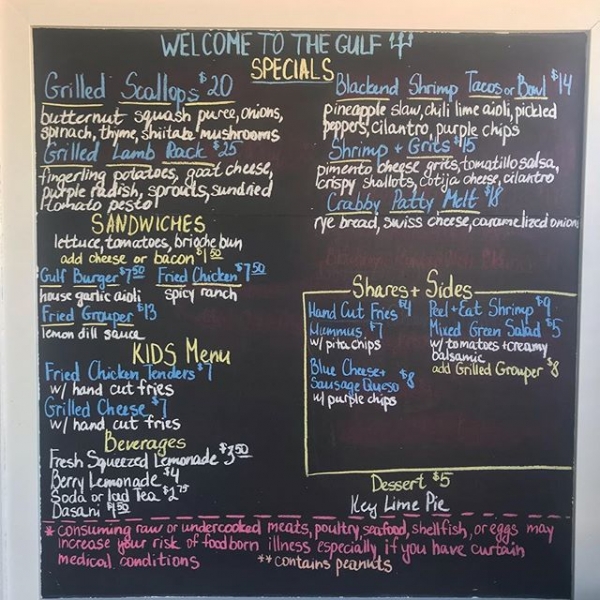 WELCOME TO THE GULF
SPECIALS
Grilled Scallops $20
butternut squash puree, onions,
spinach, thyme, shiitake mushrooms
Grilled Lamb Rack $25
fingerling potatoes, goat cheese,
purple radish, sprouts, sundried
tomato pesto
Blackend Shrimp Tacos or Bowl $14
pineapple slaw, chili lime aioli, pickled
peppers, cilantro, purple chips
Shrimp + Grits $15
pimento cheese grits, tomatillo salsa,
crispy shallots, cotija cheese, cilantro
Crabby Patty Melt $18
rye bread, swiss cheese, caramelized onion
SANDWICHES
lettuce, tomatoes, brioche bun
add cheese or bacon $1.50
Gulf Burger $7.50 Fried Chicken $7.50
house garlic aioli spicy ranch
Fried Grouper $13
lemon dill sauce
KIDS Menu
Fried Chicken Tenders $7
w/ hand cut fries
Grilled Cheese $7
w/ hand cut fries
Beverages
Fresh Squeezed Lemonade $3.50
Berry Lemonade $4
Soda or Iced Tea $2.75
Dasani $1.50
Shares + Sides
Hand Cut Fries $4
Hummus $7
w/ pita chips
Blue Cheese +
Sausage Queso $8
w/ purple chips
Peel + Eat Shrimp $9
Mixed Green Salad $5
w/ tomatoes + creamy
balsamic
add Grilled Grouper $8
Dessert $5
Key Lime Pie
* consuming raw or undercooked meats, poultry, seafood, shellfish, or eggs may
increase your risk of foodborn illness especially if you have curtain
medical conditions **contains peanuts